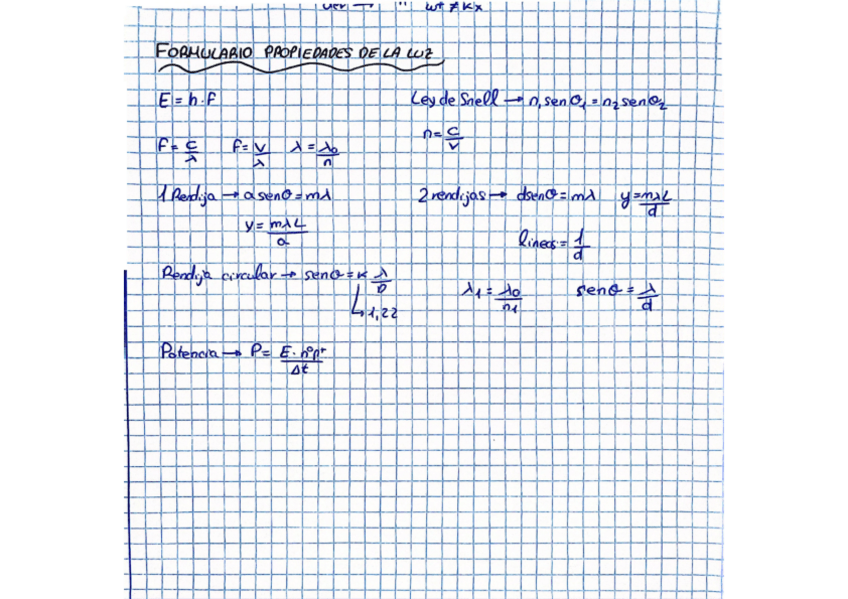 ver → " wt ≠ kx
FORMULARIO PROPIEDADES DE LA LUZ
E = h · f
Ley de Snell → n₁ sen θ₁ = n₂ sen θ₂
n = c/v
f = c/λ f = v/λ λ = λ₀/n
1 Rendija → a sen θ = mλ
2 rendijas → d sen θ = mλ y = mλL/d
y = mλL/a
lineas = 1/d
Rendija circular → sen θ = K λ/D
↳ 1,22
λ₁ = λ₀/n₁ sen θ = λ/d
Potencia → P = E · nºpʳ/Δt